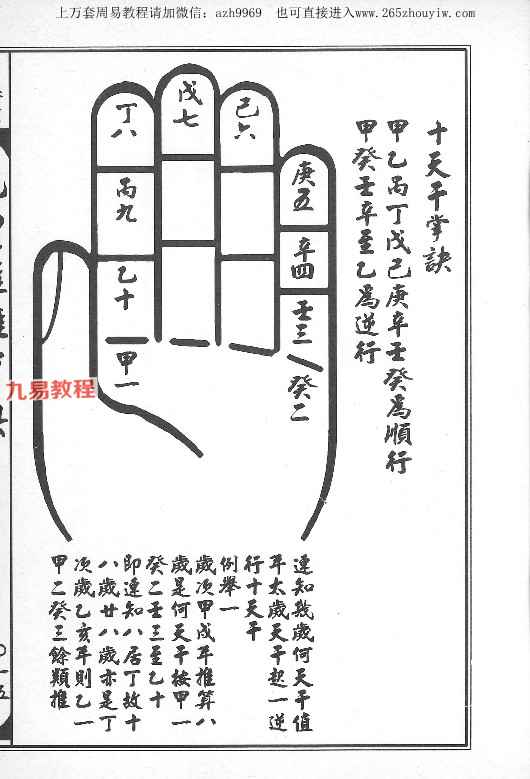 上万套周易教程请加微信：azh9969　也可直接进入www.265zhouyiw.com
十天干掌訣
甲乙丙丁戊己庚辛壬癸為順行
甲癸壬辛至乙為逆行
丁八
戊七
己六
庚五
丙九
辛四
乙十
壬三
甲一
癸二
九易教程
速知幾歲何天干值
年太歲天干起一逆
行十天干
例舉一
歲次甲戌年推算八
歲是何天干按甲一
癸二壬三至乙十
即速知八居丁故十
八歲廿八歲亦是丁
次歲乙亥年則乙一
甲二癸三餘類推
〇一五